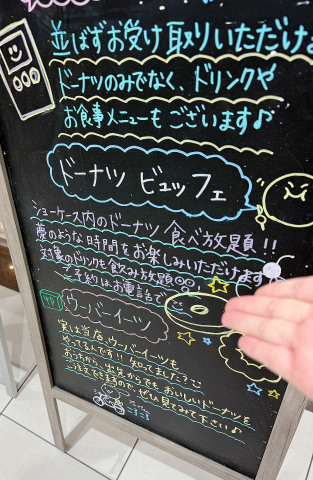 並ばずお受け取りいただけま
ドーナツのみでなく、ドリンクや
お食事メニューもございます♪
ドーナツ ビュッフェ
ショーケース内のドーナツ食べ放題!!
夢のような時間をお楽しみいただけます
対象のドリンクも飲み放題
ご予約はお電話で
ウーバーイーツ
実は当店、ウーバーイーツも
やってるんです!! 知ってました?
おうちから、出先からでもおいしいドーナツを
ご注文できるので ぜひ見てみて下さい♪